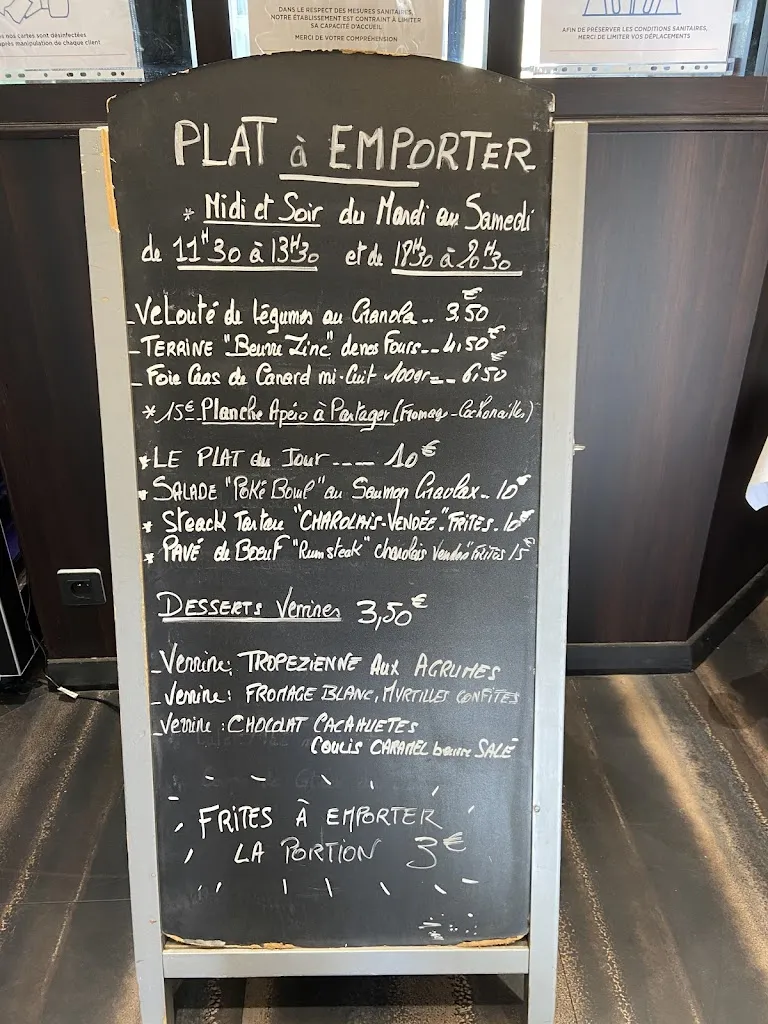 os cartes sont désinfectées
après manipulation de chaque client
DANS LE RESPECT DES MESURES SANITAIRES,
NOTRE ÉTABLISSEMENT EST CONTRAINT À LIMITER
SA CAPACITÉ D'ACCUEIL
MERCI DE VOTRE COMPRÉHENSION
AFIN DE PRÉSERVER LES CONDITIONS SANITAIRES,
MERCI DE LIMITER VOS DÉPLACEMENTS
PLAT à EMPORTER
* Midi et Soir du Mardi au Samedi
de 11H30 à 13H30 et de 18H30 à 20H30
- Velouté de légumes au Granola.. 3,50€
- TERRINE "Beurre Zinc" de nos Fours-- 4,50€
- Foie Gras de Canard mi-Cuit 100gr-- 6,50€
* 15€ Planche Apéro à Partager (Fromage - Cochonailles)
* LE PLAT du Jour ---- 10€
* SALADE "Poké Bowl" au Saumon Gravlax.. 10€
* Steack Tartare "CHAROLAIS-VENDÉE". FRITES. 10€
* PAVÉ de BOEUF "Rumsteak" charolais Vendée FRITES 15€
DESSERTS Verrines 3,50€
- Verrine: TROPEZIENNE AUX AGRUMES
- Verrine: FROMAGE BLANC, MYRTILLES CONFITES
- Verrine: CHOCOLAT CACAHUETES
COULIS CARAMEL beurre SALÉ
FRITES À EMPORTER
LA PORTION 3€